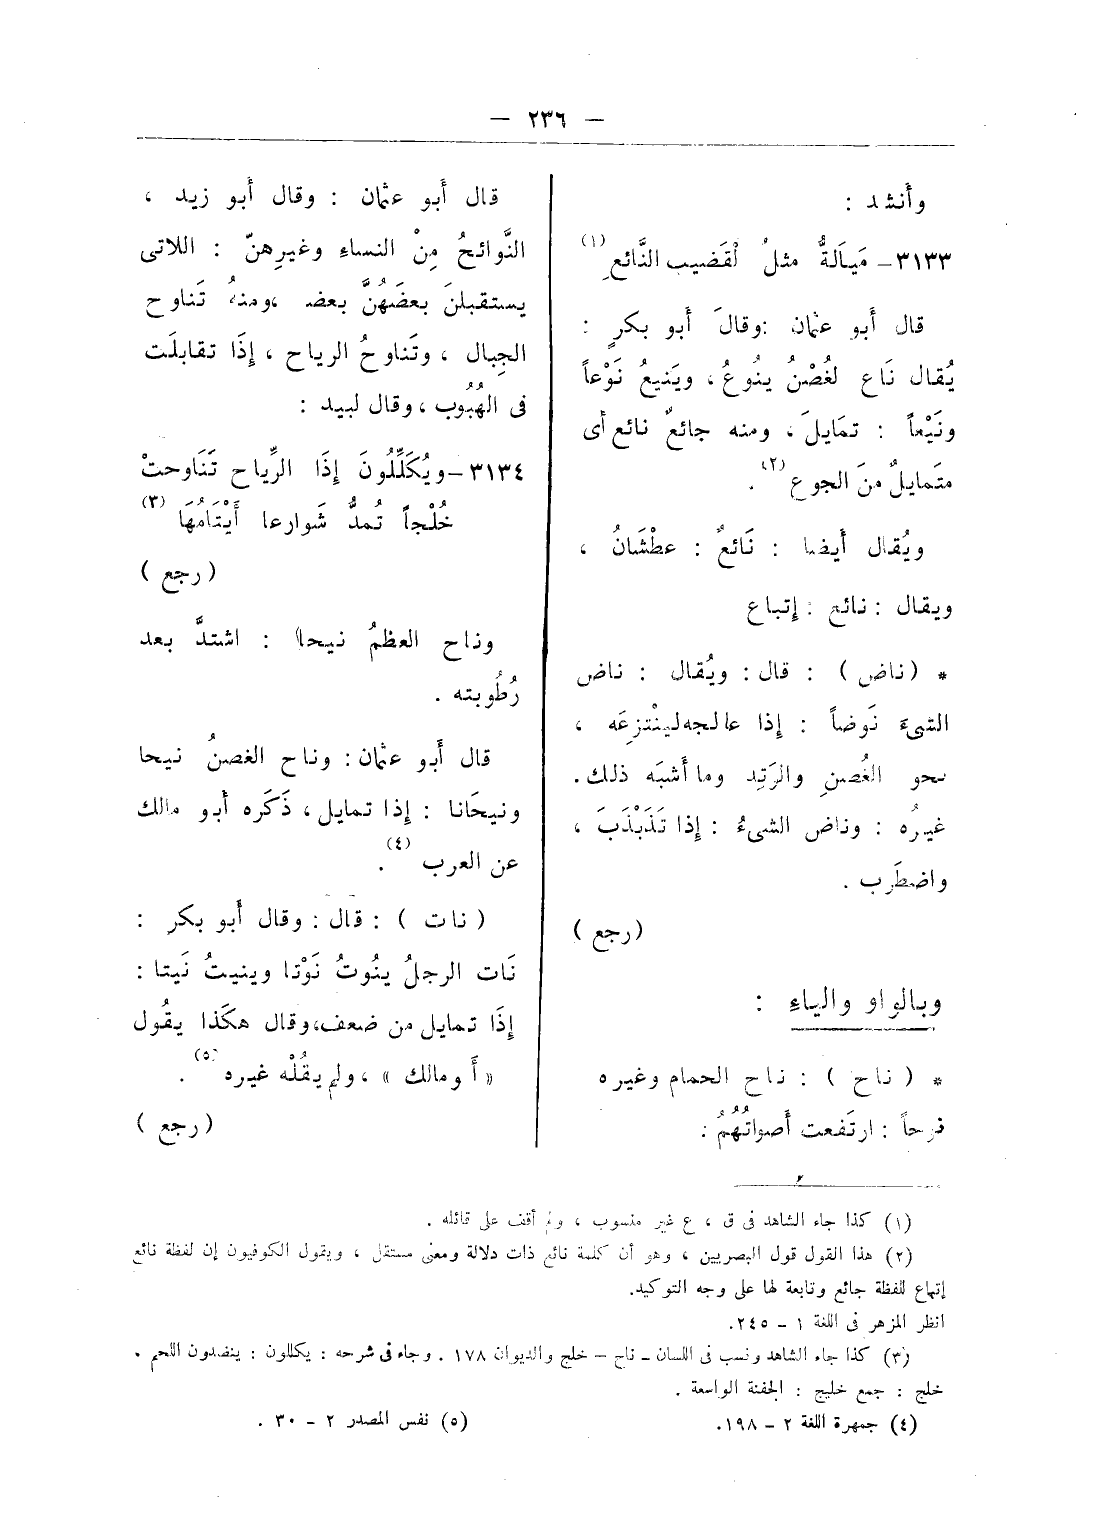 — ٢٣٦ —
وأنشد :
٣١٣٣ – مَيالَةٌ مثلُ لْقَضيب النَّائعِ (١)
قال أبو عثمان : وقالَ أبو بكرٍ :
يُقال نَاع لغُصْنُ ينُوعُ ، ويَنيعُ نَوْعاً
ونَيْعاً : تمَايلَ ، ومنه جائعٌ نائع أى
متَمايلٌ منَ الجوع (٢) .
ويُقال أيضا : نَائعٌ : عطْشَانُ ،
ويقال : نائع : إتباع
* ( ناض ) : قال : ويُقال : ناض
الشىءَ نَوضاً : إذا عالجه لينْتزِعَه ،
نحو الغُصنِ والوَتِد وما أشبَه ذلك .
غيرُه : وناض الشىءُ : إذا تَذَبْذَبَ ،
واضطَرب .
( رجع )
وبالواو والياء :
* ( ناح ) : ناح الحمام وغيره
نوحاً : ارتَفعت أصواتُهُمُ .
قال أبو عثمان : وقال أبو زيد ،
النَّوائحُ مِنْ النساءِ وغيرِهنّ : اللاتى
يستقبلنَ بعضُهُنَّ بعضَ ، ومنهُ تَناوح
الجِبال ، وتَناوحُ الرياح ، إذَا تقابلَت
فى الهُبُوب ، وقال لبيد :
٣١٣٤ – ويُكَلِّلُونَ إذَا الرِّياح تَنَاوحتْ
خُلْجاً تُمدُّ شَوارعا أَيْتَامُهَا (٣)
( رجع )
وناح العظمُ نيحا : اشتدَّ بعد
رُطُوبته .
قال أبو عثمان : وناح الغصنُ نيحا
ونيحَانا : إذا تمايل ، ذَكَره أبو مالك
عن العرب (٤) .
( نات ) : قال : وقال أبو بكر :
نَات الرجلُ ينُوتُ نَوْتا وينيتُ نَيتا :
إذَا تمايل من ضعف ، وقال هكَذا يقُول
« أَ ومالك » ، ولم يقُلْه غيره (٥) .
( رجع )
(١) كذا جاء الشاهد فى ق ، ع غير منسوب ، ولم أقف على قائله .
(٢) هذا القول قول البصريين ، وهو أن كلمة نائع ذات دلالة ومعنى مستقل ، ويقول الكوفيون إن لفظة نائع
إتباع للفظة جائع وتابعة لها على وجه التوكيد.
انظر المزهر فى اللغة ١ – ٢٤٥.
(٣) كذا جاء الشاهد ونسب فى اللسان – ناح – خلج والديوان ١٧٨ . وجاء فى شرحه : يكللون : ينضدون اللحم .
خلج : جمع خليج : الجفنة الواسعة .
(٤) جمهرة اللغة ٢ – ١٩٨. (٥) نفس المصدر ٢ – ٣٠ .